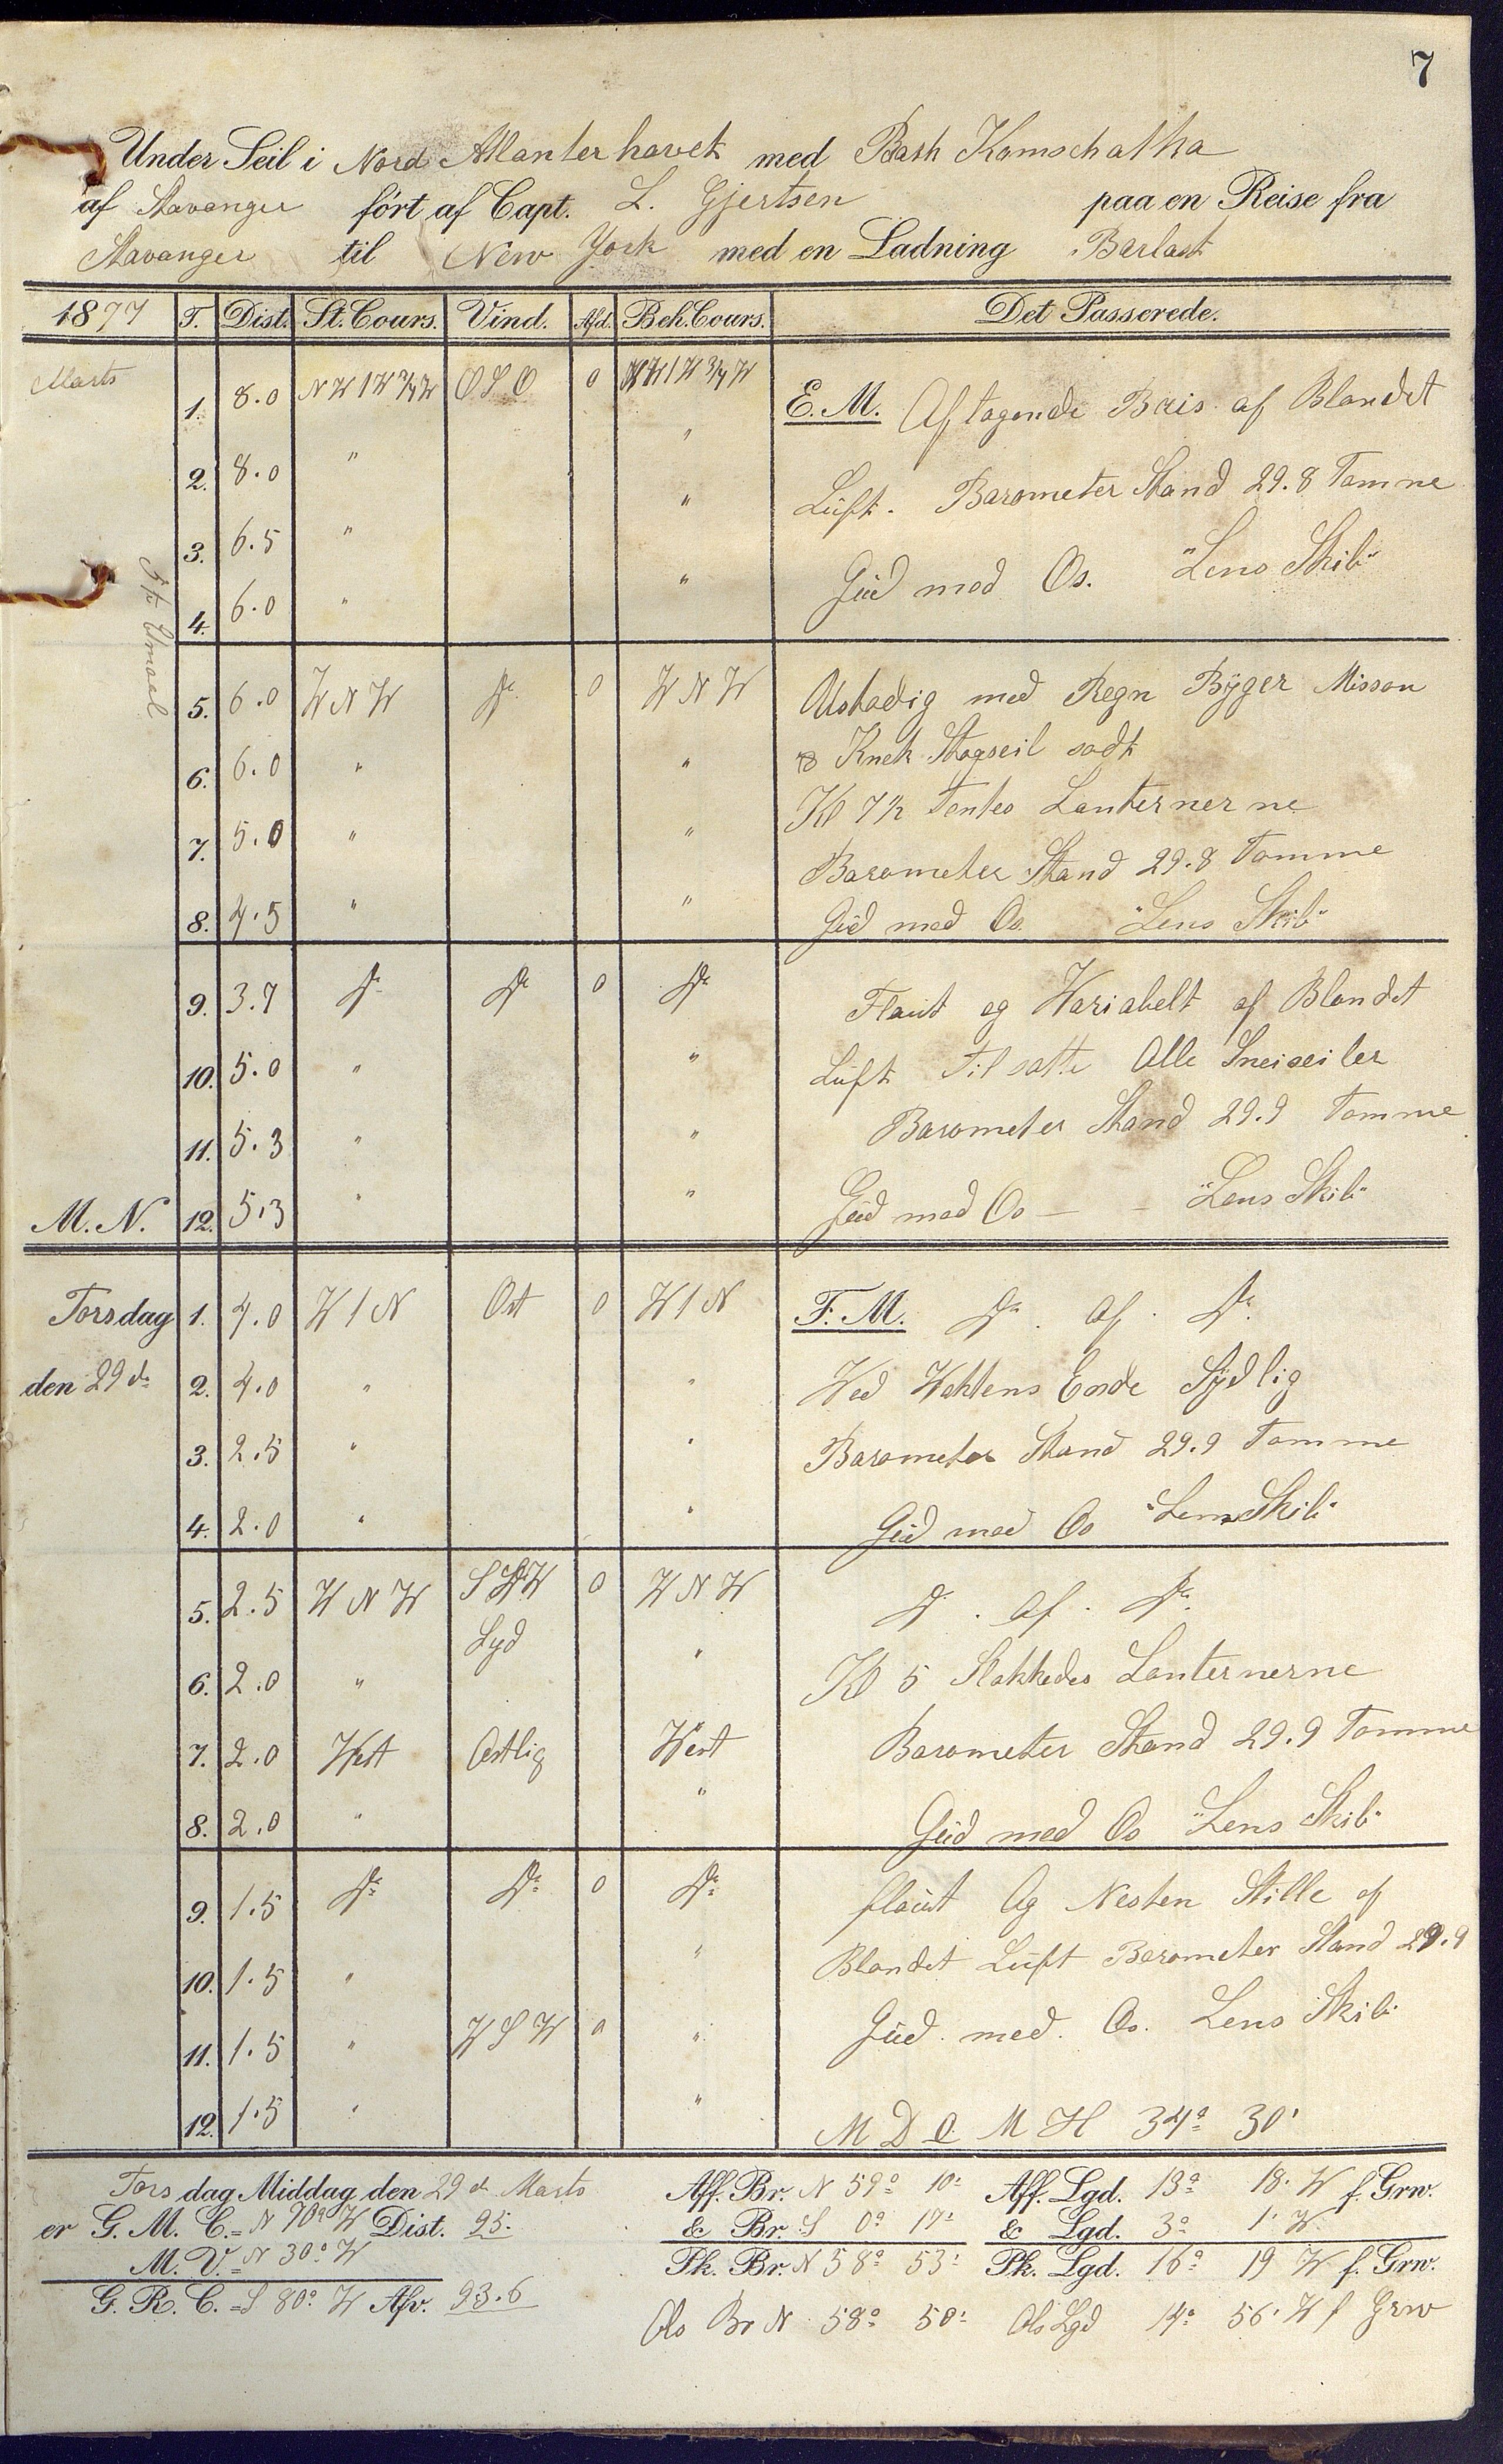 7
Under Seil i Nord Atlanterhavet med Bark Kamschatka
af Stavanger ført af Capt. L. Gjertsen paa en Reise fra
Stavanger til New York med en Ladning Barlast
1877 T. Dist. St. Cours. Vind. Afd. Beh. Cours. Det Passerede.
Marts
1. 8.0 NW/W 3/4 W OSO 0 NW/W 3/4 W E. M. Aftagende Bris af Blandet
2. 8.0 " " Luft. Barometer Stand 29.8 Tomme
3. 6.5 " "
4. 6.0 " " Gud med Os. "Lens Skib"
5. 6.0 WNW Do 0 WNW Ustadig med Regn Byger Missan
6. 6.0 " " & Knek Stagseil sadt
7. 5.0 " " Kl 7½ Tentes Lanternerne
Barometer Stand 29.8 Tomme
8. 4.5 " " Gud med Os "Lens Skib"
9. 3.7 Do Do 0 Do Flaut og Wariabelt af Blandet
10. 5.0 " " Luft Tilsatte Alle Sneiseiler
11. 5.3 " " Barometer Stand 29.9 Tomme
M. N. 12. 5.3 " " Gud med Os — - "Lens Skib"
Torsdag 1. 4.0 W/N Ost 0 W/N F. M. Do. af. Do.
den 29 de 2. 4.0 " " Wed Wahtens Ende Sydlig
3. 2.5 " " Barometer Stand 29.9 Tomme
4. 2.0 " " Gud med Os "Lens Skib"
5. 2.5 WNW SW 0 WNW Do. af. Do.
Syd "
6. 2.0 " Kl 5 Slakkedes Lanternerne
7. 2.0 West Ostlig West Barometer Stand 29.9 Tomme
8. 2.0 " " Gud med Os "Lens Skib"
9. 1.5 Do Do 0 Do flaut Og Nesten Stille af
10. 1.5 " " Blandet Luft Barometer Stand 29.9
11. 1.5 " WSW 0 " Gud. med. Os. Lens Skib"
12. 1.5 " " M D C M H 34° 30'
Torsdag Middag den 29 de Marts
er G. M. C. = N 70° W Dist. 95.
M. V. = N 30° W
G. R. C. = S 80° W Afv. 93.6
Aff. Br. N 59° 10' Aff. Lgd. 13° 18' W f. Grw.
& Br. S 0° 17' & Lgd. 3° 1' W
Pk. Br. N 58° 53' Pk. Lgd. 16° 19 W f. Grw.
Obs Br N 58° 50' Obs Lgd 14° 56' W f Grw